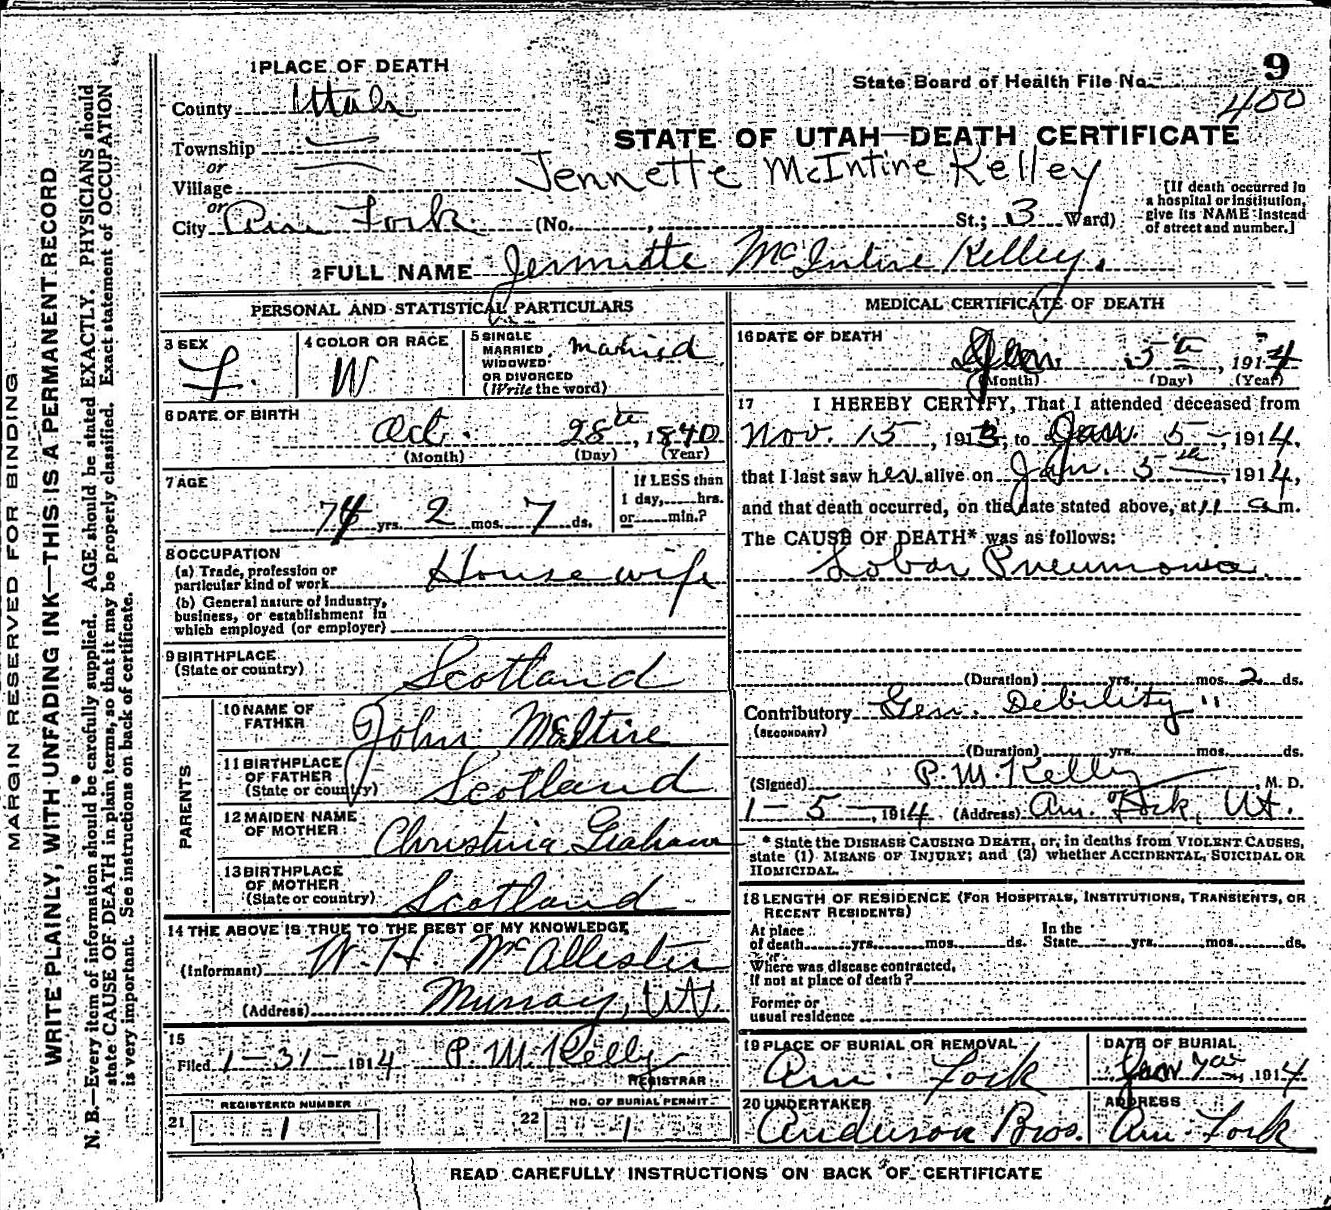 MARGIN RESERVED FOR BINDING
WRITE PLAINLY, WITH UNFADING INK—THIS IS A PERMANENT RECORD
N. B.—Every item of information should be carefully supplied. AGE should be stated EXACTLY. PHYSICIANS should
state CAUSE OF DEATH in plain terms, so that it may be properly classified. Exact statement of OCCUPATION
is very important. See instructions on back of certificate.
1 PLACE OF DEATH
9
State Board of Health File No.
400
County Utah
STATE OF UTAH—DEATH CERTIFICATE
Township
or
Village
Jennette McIntine Kelley
or
City Am Fork (No. , St.; 3 Ward)
[If death occurred in
a hospital or institution,
give its NAME instead
of street and number.]
2 FULL NAME Jennette McIntire Kelley.
PERSONAL AND STATISTICAL PARTICULARS
3 SEX
F.
4 COLOR OR RACE
W
5 SINGLE
MARRIED,
WIDOWED
OR DIVORCED
(Write the word)
Married
6 DATE OF BIRTH
Oct. 28th, 1840
(Month) (Day) (Year)
7 AGE
74 yrs. 2 mos. 7 ds.
If LESS than
1 day, hrs.
or min.?
8 OCCUPATION
(a) Trade, profession or
particular kind of work House wife
(b) General nature of industry,
business, or establishment in
which employed (or employer)
9 BIRTHPLACE
(State or country) Scotland
PARENTS
10 NAME OF
FATHER John McItire
11 BIRTHPLACE
OF FATHER
(State or country) Scotland
12 MAIDEN NAME
OF MOTHER Christina Graham
13 BIRTHPLACE
OF MOTHER
(State or country) Scotland
14 THE ABOVE IS TRUE TO THE BEST OF MY KNOWLEDGE
(Informant) W. H. McAllester
(Address) Murray, Ut.
15
Filed 1-31-1914 P. M. Kelly
REGISTRAR
21
REGISTERED NUMBER
1
22
NO. OF BURIAL PERMIT
1
MEDICAL CERTIFICATE OF DEATH
16 DATE OF DEATH
Jan. 5th, 1914
(Month) (Day) (Year)
17 I HEREBY CERTIFY, That I attended deceased from
Nov. 15, 1913, to Jan. 5- 1914,
that I last saw her alive on Jan. 5th, 1914,
and that death occurred, on the date stated above, at 11 a m.
The CAUSE OF DEATH* was as follows:
Lobar Pneumonia.
(Duration) yrs. mos. 2 ds.
Contributory Gen. Debility "
(SECONDARY)
(Duration) yrs. mos. ds.
(Signed) P. M. Kelly, M. D.
1-5-, 1914 (Address) Am. Fork, Ut.
* State the DISEASE CAUSING DEATH, or, in deaths from VIOLENT CAUSES,
state (1) MEANS OF INJURY; and (2) whether ACCIDENTAL, SUICIDAL OR
HOMICIDAL.
18 LENGTH OF RESIDENCE (FOR HOSPITALS, INSTITUTIONS, TRANSIENTS, OR
RECENT RESIDENTS)
At place
of death yrs. mos. ds.
In the
State yrs. mos. ds.
Where was disease contracted,
if not at place of death?
Former or
usual residence
19 PLACE OF BURIAL OR REMOVAL
Am. Fork
DATE OF BURIAL
Jan 7, 1914
20 UNDERTAKER
Anderson Bros.
ADDRESS
Am. Fork
READ CAREFULLY INSTRUCTIONS ON BACK OF CERTIFICATE